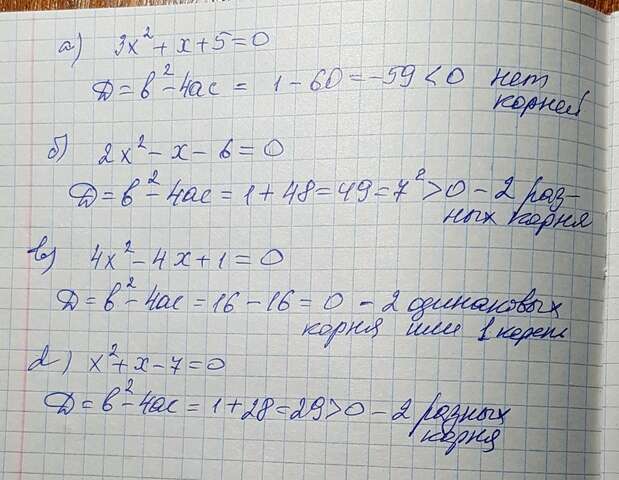 а) 3x² + x + 5 = 0
Д = в² - 4ас = 1 - 60 = -59 < 0 нет
корней
б) 2x² - x - 6 = 0
Д = в² - 4ас = 1 + 48 = 49 = 7² > 0 - 2 раз-
ных корня
в) 4x² - 4x + 1 = 0
Д = в² - 4ас = 16 - 16 = 0 - 2 одинаковых
корня или 1 корень
d) x² + x - 7 = 0
Д = в² - 4ас = 1 + 28 = 29 > 0 - 2 разных
корня